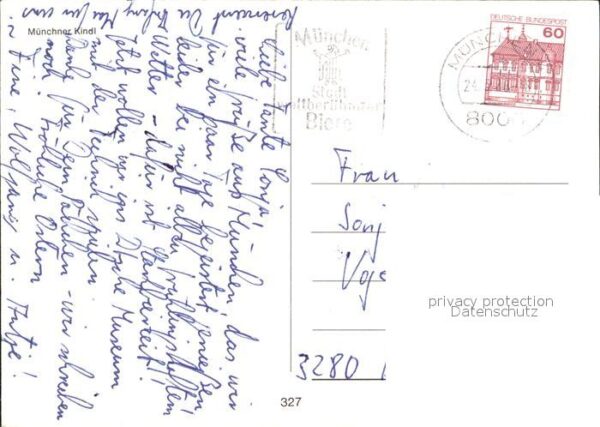 Münchner Kindl
Liebe Tante Sonja!
viele Grüße aus München, das wir
für ein paar Tage begeistert genießen
leider bei nicht allzu frühlingshaftem
Wetter - dafür ist Starkbierzeit!
Jetzt wollen wir ins Dtsche Museum
mit der Technik spielen.
Dank für Dein - wir schreiben
noch! Fröhliche Ostern
Eure, Wolfgang u. Antje!
München
Stadt
weltberühmter
Biere
DEUTSCHE BUNDESPOST
60
MÜNCH
24
800
Frau
Sonj
Voge
3280
privacy protection
Datenschutz
327